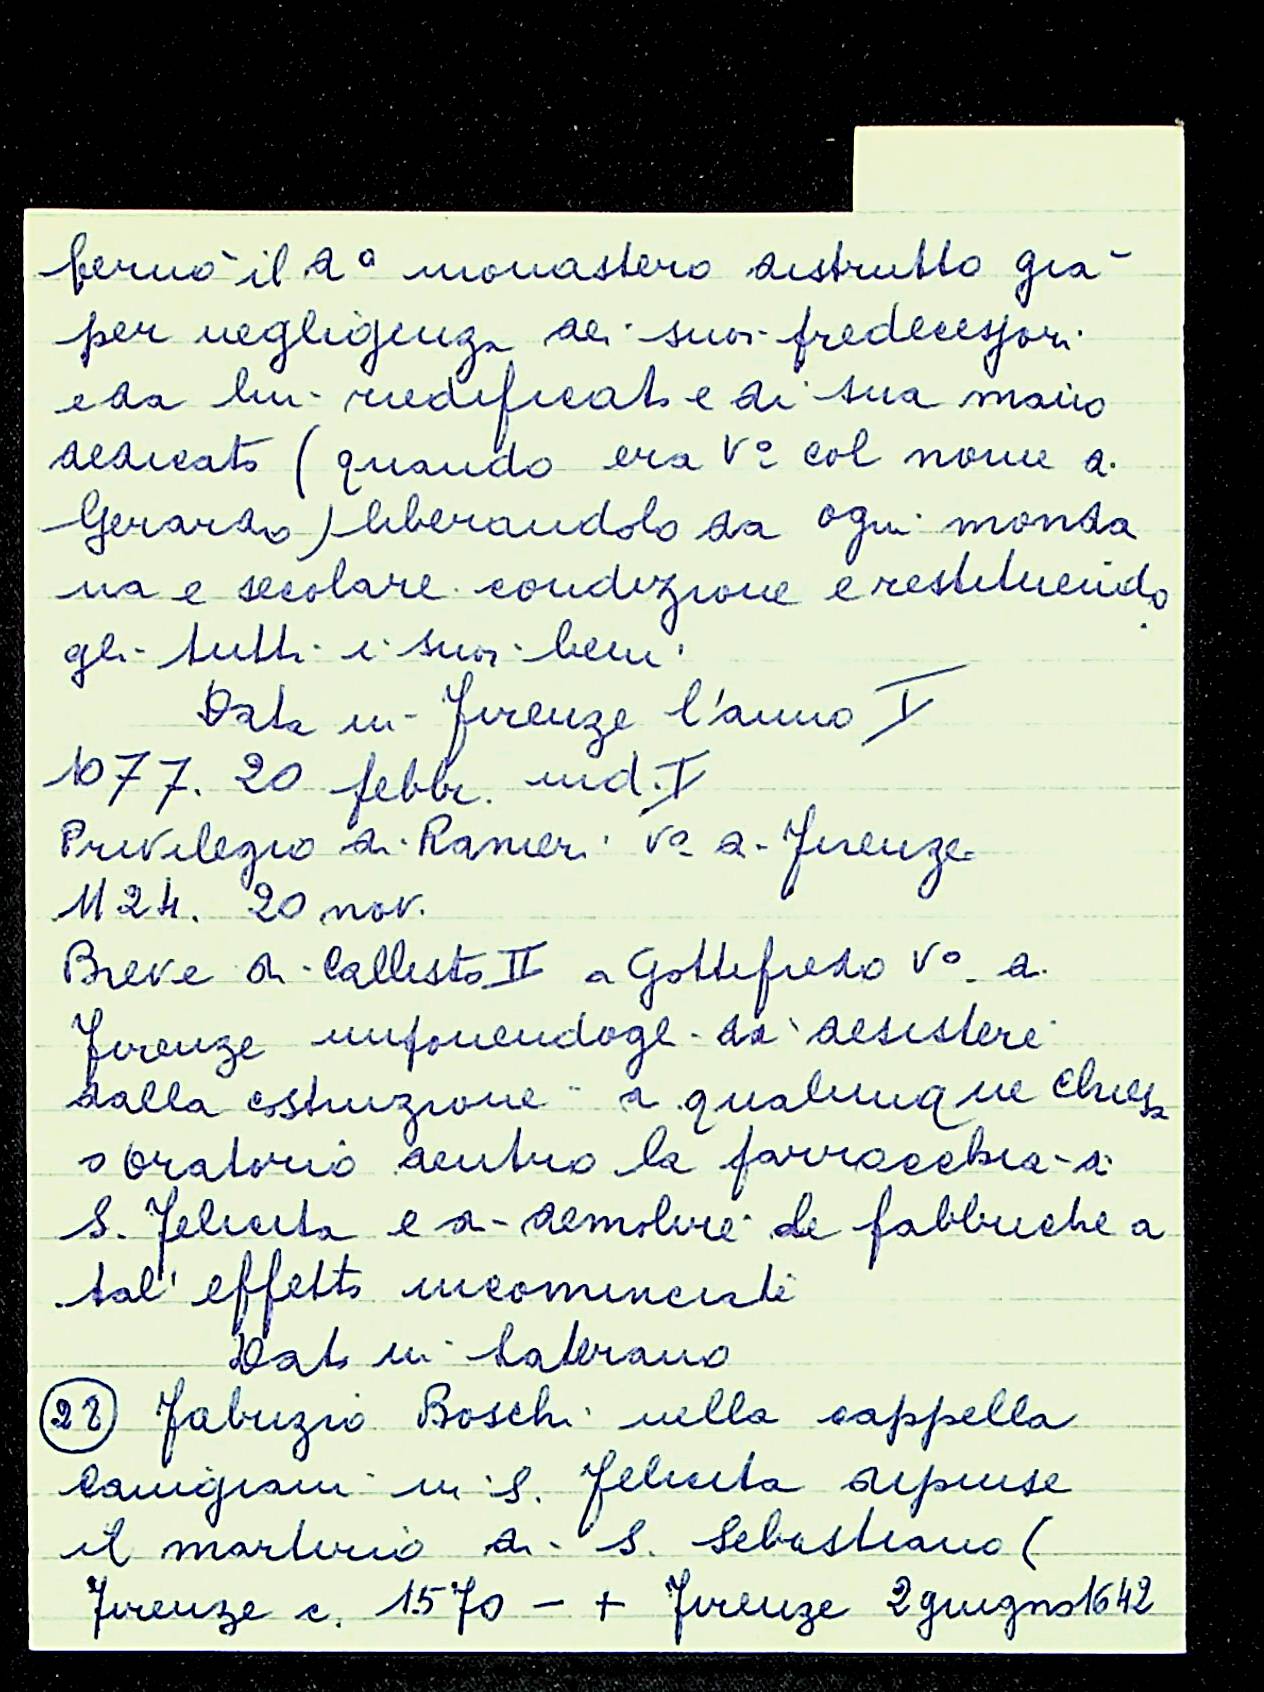 fermò il d° monastero distrutto già
per negligenza dei suoi predecessori
e da lui riedificato e di sua mano
dedicato (quando era V° col nome di
Gerardo) liberandolo da ogni monda
na e secolare condizione e restituendo
gli tutti i suoi beni
Data in Firenze l'anno V
1077. 20 febbr. ind. I
Privilegio di Ranieri V° di Firenze
1124. 20 nov.
Breve di Callisto II a Gottifredo V° di
Firenze imponendogli di desistere
dalla costruzione di qualunque Chiesa
o Oratorio dentro la parrocchia di
S. Felicita e di demolire le fabbriche a
tal' effetto incominciate
Dato in Laterano
28 Fabrizio Boschi nella cappella
Canigiani in S. Felicita dipinse
il martirio di S. Sebastiano (
Firenze c. 1570 - + Firenze 2 giugno 1642